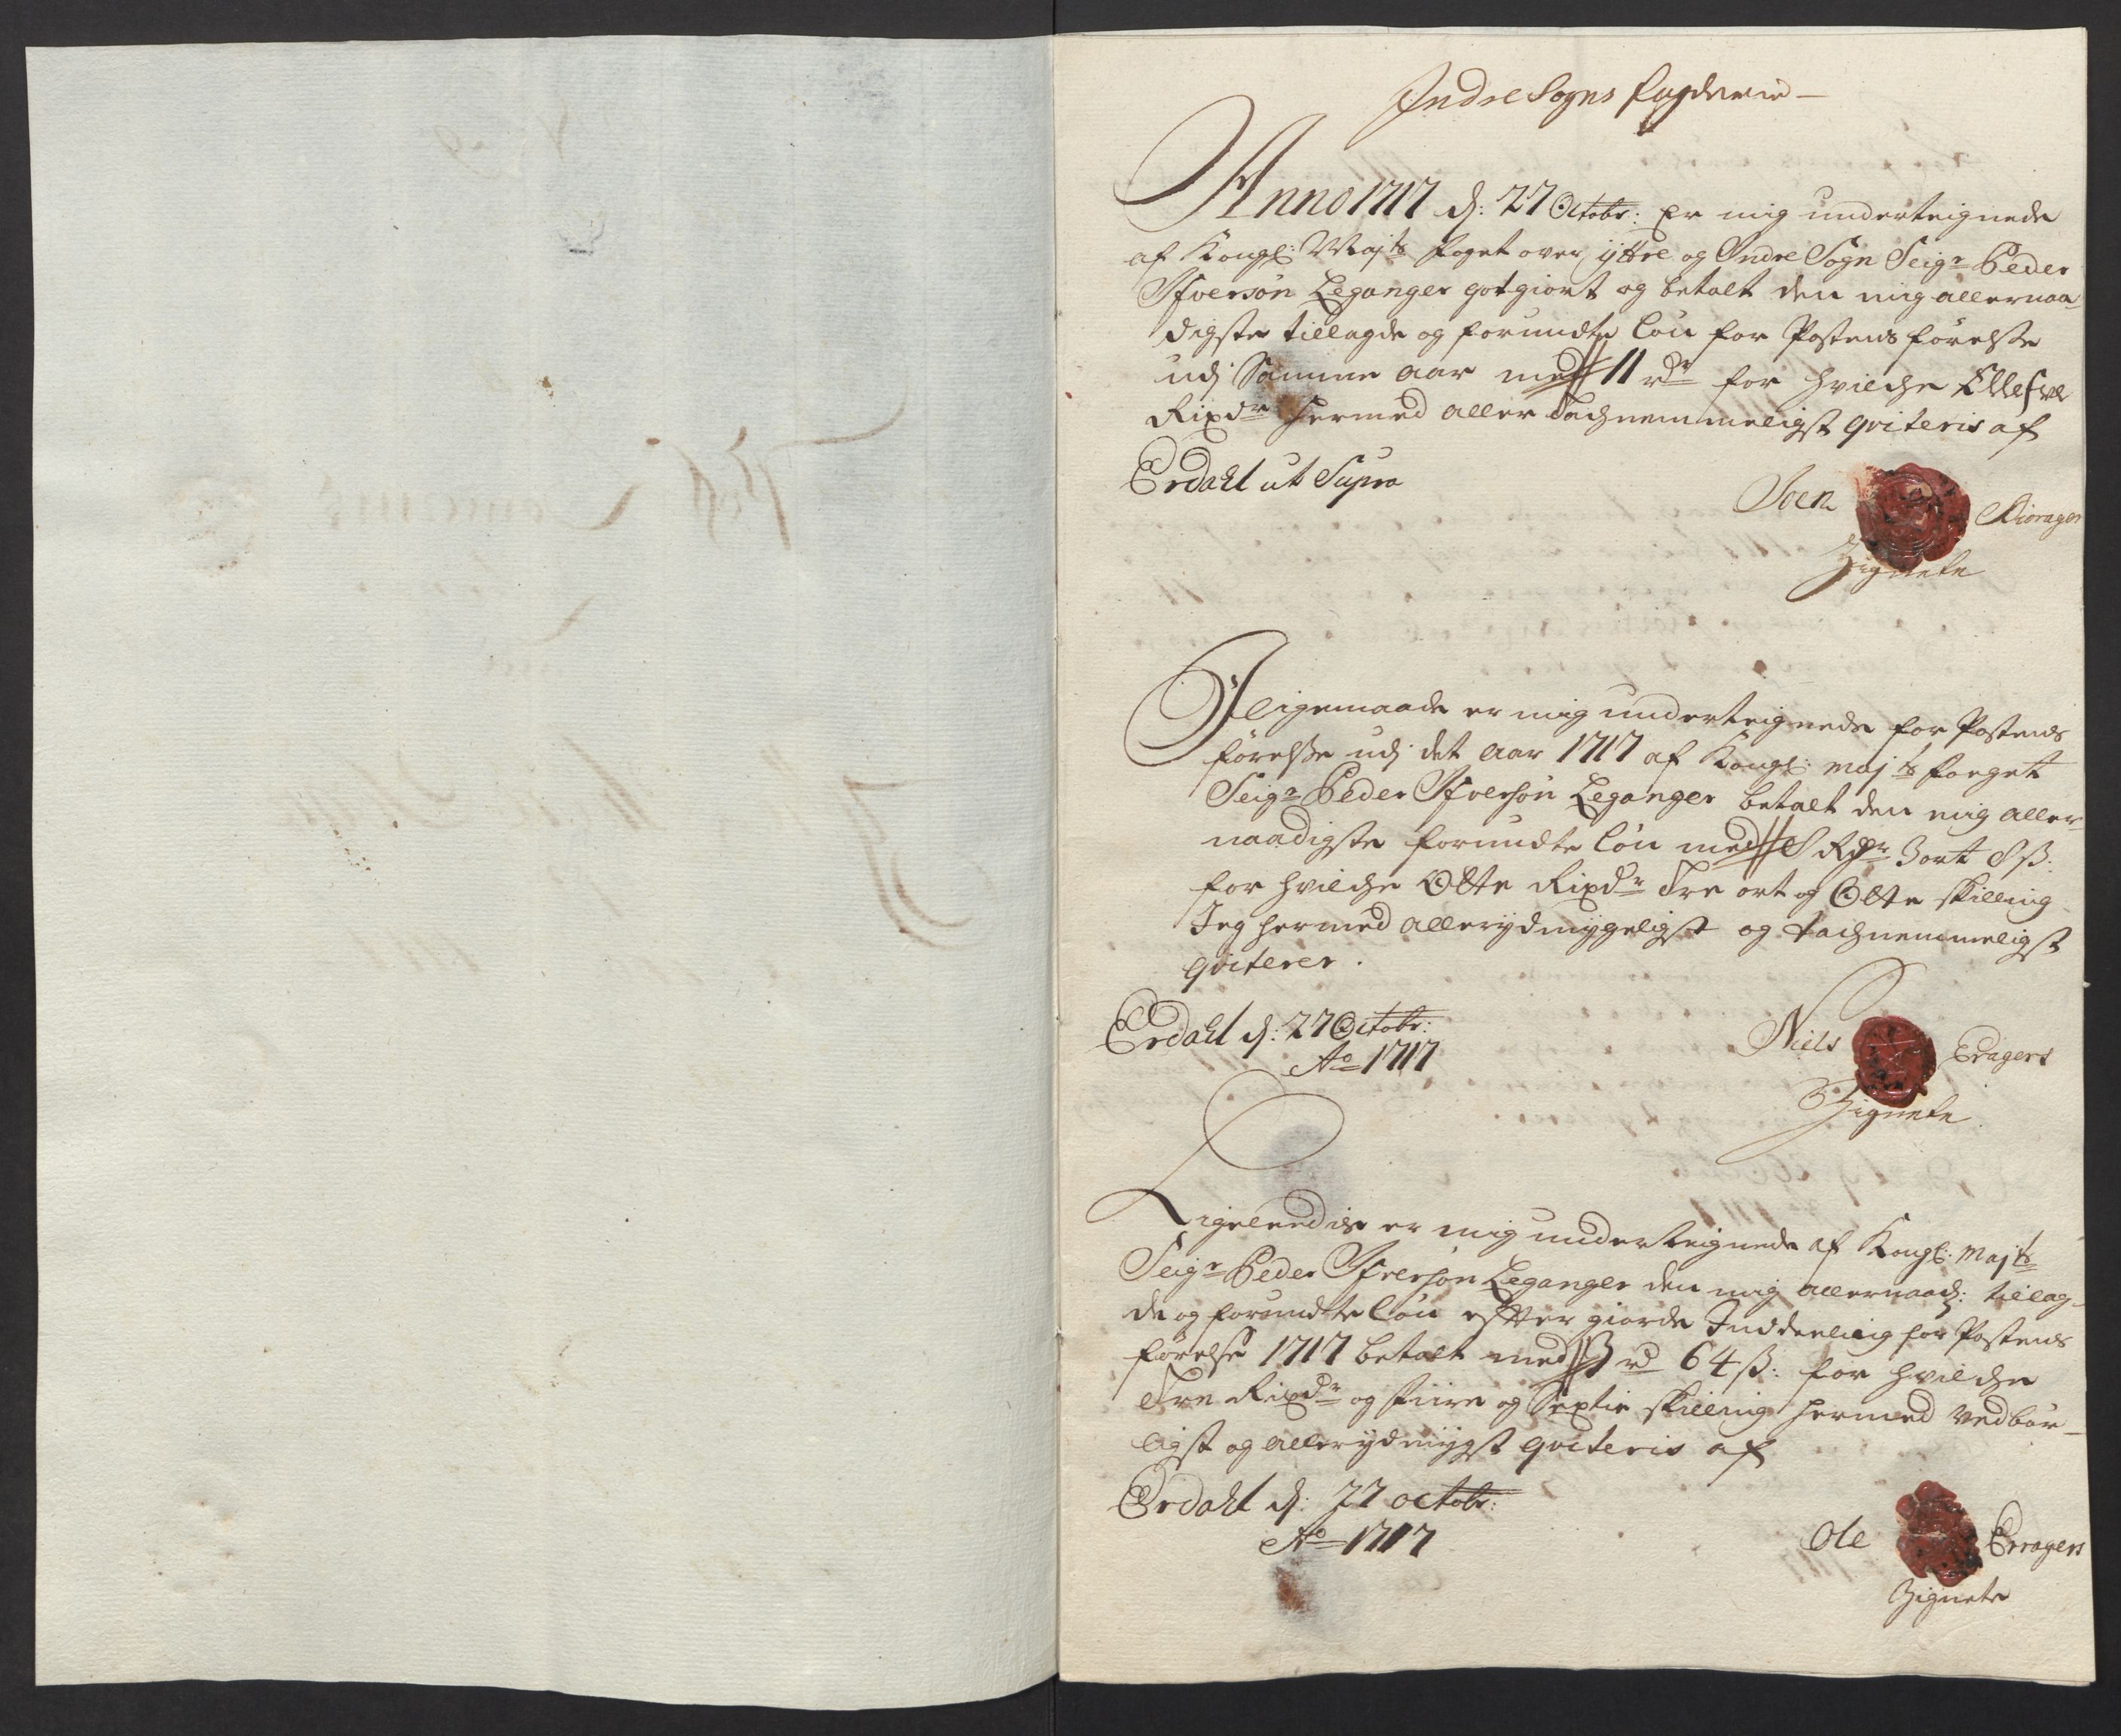 Indre Sogns fogderie
Anno 1717 d: 27 Octobr: Er mig underteignede
af Kongl: Majts foget over ÿttre og Indre Sogn Seigr Peder
Ifversøn Leganger gotgiort og betalt den mig allernaa-
digste tillagde og forundte Løn for Postens førelsse
udj Samme aar med 11 rdr for hvilche Ellefve
Rixdr hermed aller tachnemmeligst qviteris af
Erdahl ut Supra
Joen
Zignete
I ligemaade er mig underteignede for Postens
førelsse udj det aar 1717 af Kongl: majts foeget
Seigr Peder Ifversøn Leganger betalt den mig aller-
naadigste forundte Løn med 8 Rdr 3 ort 8 ß:
for hvilche Otte Rixdr Tre ort og Otte skilling
Jeg hermed allerydmÿgeligst og tachnemmeligst
qviterer.
Erdahl d: 27 Octobr:
Ao 1717
Niels Eragers
Zignete
Ligeleedis er mig underteignede af Kongl: Majts
Seigr Peder Ifversøn Leganger den mig allernaad: tillag-
de og forundte Løn efter giorde Inddeeling for Postens
førelse 1717 betalt med 3 rd 64 ß: for hvilche
Tre Rixdr og fiire og Sextie skilling hermed vedbør-
ligst og allerydmÿgst qviteris af
Erdahl d: 27 octobr:
Ao 1717
Ole Erragers
Zignete